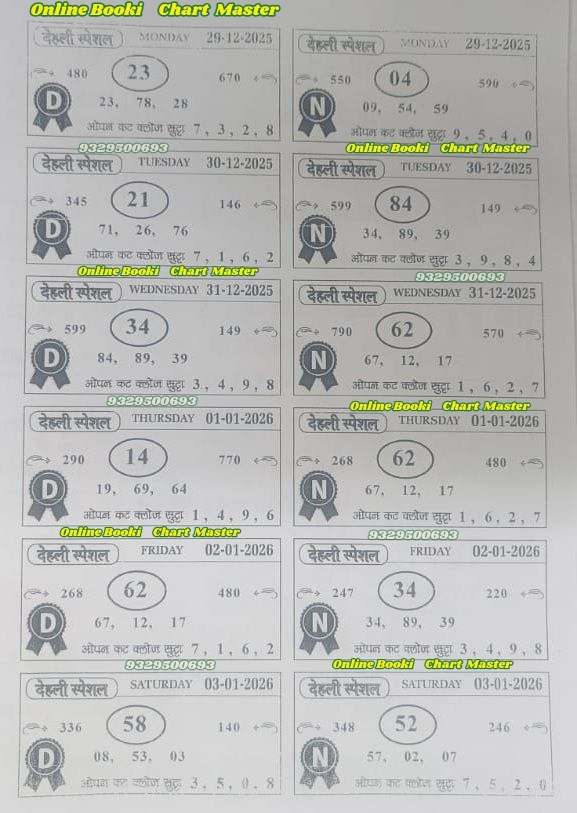 Online Booki Chart Master
देहली स्पेशल MONDAY 29-12-2025
480 23 670
D 23, 78, 28
ओपन कट क्लोज सुट्टा 7, 3, 2, 8
देहली स्पेशल MONDAY 29-12-2025
550 04 590
N 09, 54, 59
ओपन कट क्लोज सुट्टा 9, 5, 4, 0
9329500693
Online Booki Chart Master
देहली स्पेशल TUESDAY 30-12-2025
345 21 146
D 71, 26, 76
ओपन कट क्लोज सुट्टा 7, 1, 6, 2
देहली स्पेशल TUESDAY 30-12-2025
599 84 149
N 34, 89, 39
ओपन कट क्लोज सुट्टा 3, 9, 8, 4
Online Booki Chart Master
9329500693
देहली स्पेशल WEDNESDAY 31-12-2025
599 34 149
D 84, 89, 39
ओपन कट क्लोज सुट्टा 3, 4, 9, 8
देहली स्पेशल WEDNESDAY 31-12-2025
790 62 570
N 67, 12, 17
ओपन कट क्लोज सुट्टा 1, 6, 2, 7
9329500693
Online Booki Chart Master
देहली स्पेशल THURSDAY 01-01-2026
290 14 770
D 19, 69, 64
ओपन कट क्लोज सुट्टा 1, 4, 9, 6
देहली स्पेशल THURSDAY 01-01-2026
268 62 480
N 67, 12, 17
ओपन कट क्लोज सुट्टा 1, 6, 2, 7
Online Booki Chart Master
9329500693
देहली स्पेशल FRIDAY 02-01-2026
268 62 480
D 67, 12, 17
ओपन कट क्लोज सुट्टा 7, 1, 6, 2
देहली स्पेशल FRIDAY 02-01-2026
247 34 220
N 34, 89, 39
ओपन कट क्लोज सुट्टा 3, 4, 9, 8
9329500693
Online Booki Chart Master
देहली स्पेशल SATURDAY 03-01-2026
336 58 140
D 08, 53, 03
ओपन कट क्लोज सुट्टा 3, 5, 0, 8
देहली स्पेशल SATURDAY 03-01-2026
348 52 246
N 57, 02, 07
ओपन कट क्लोज सुट्टा 7, 5, 2, 0